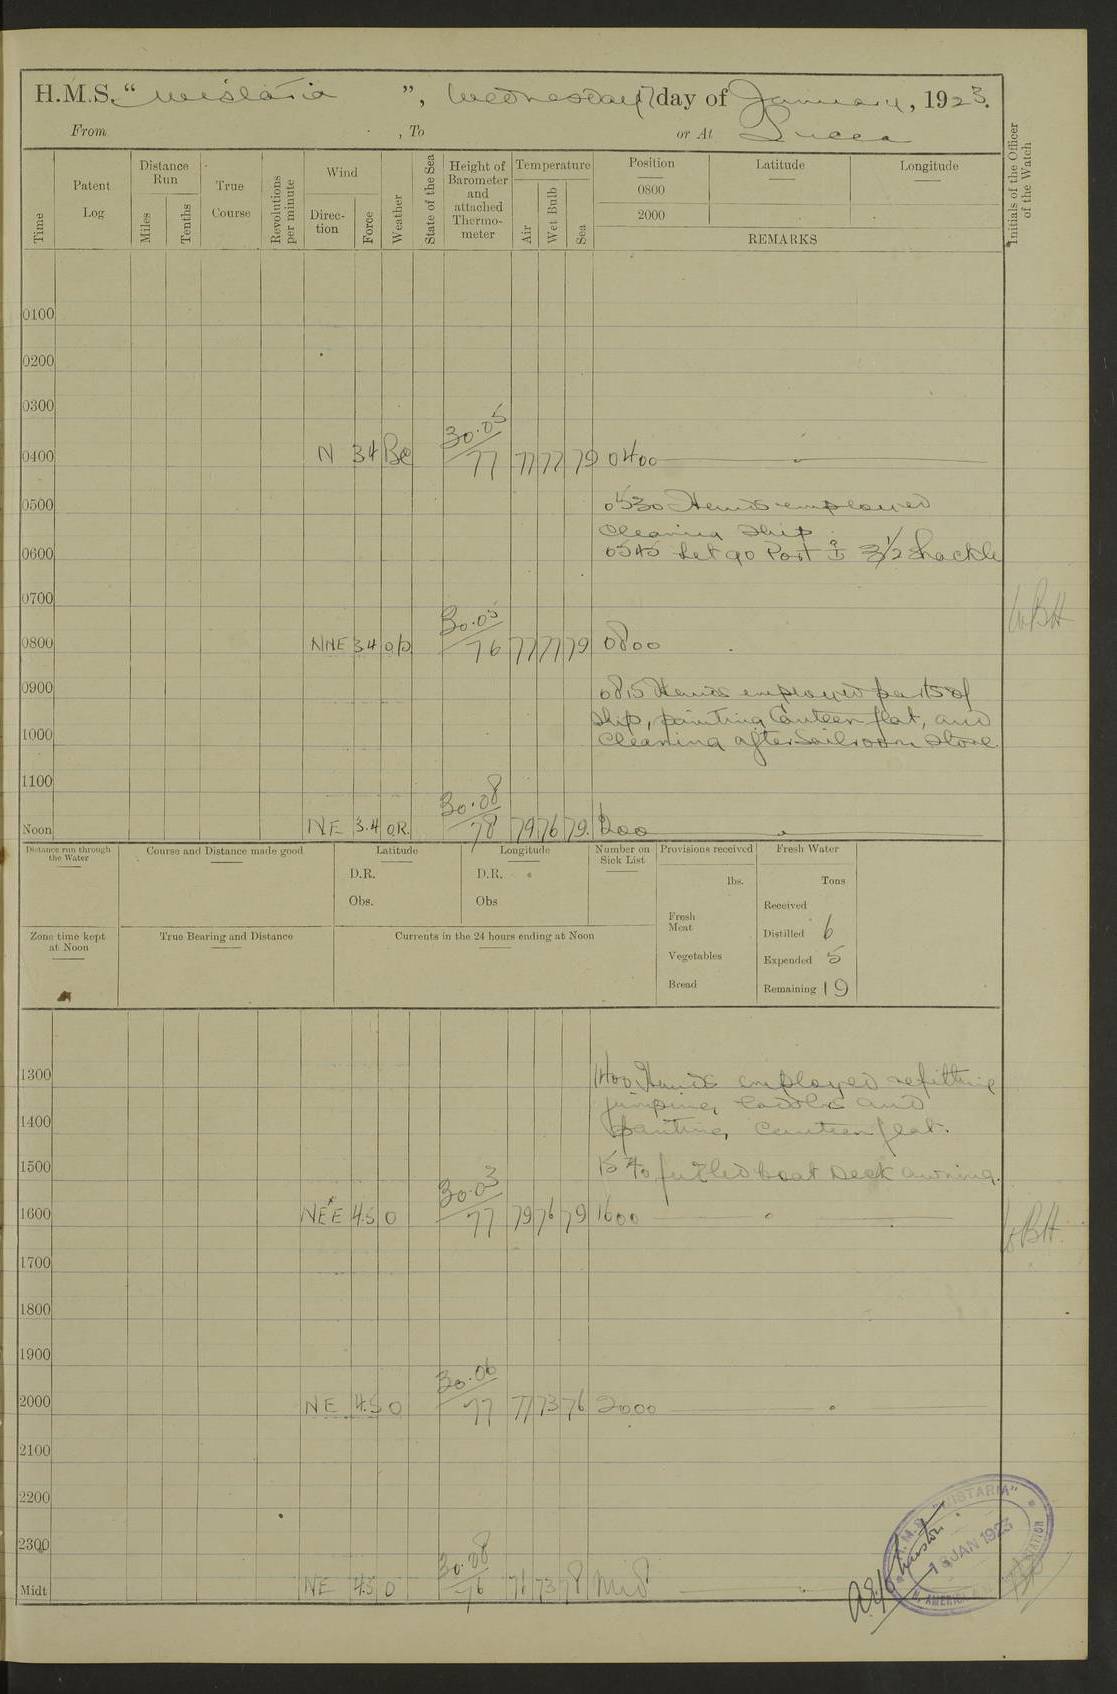 H.M.S. “Wistaria”, Wednesday 17 day of January, 1923.
From , To or At Lucea
Time
Patent Log
Distance Run
Miles
Tenths
True Course
Revolutions per minute
Wind
Direction
Force
Weather
State of the Sea
Height of Barometer and attached Thermometer
Temperature
Air
Wet Bulb
Sea
Position Latitude Longitude
0800
2000
REMARKS
Initials of the Officer of the Watch
0100
0200
0300
0400 N 3.4 Bc 30.05/77 77 77 79 0400
0500
0530 Hands employed
cleaning ship
0600 0545 Let go Port 3 1/2 Shackle
0700
WBH
0800 NNE 3.4 o/p 30.05/76 77 77 79 0800
0900 0815 Hands employed parts of
ship, painting Canteen flat, and
1000 cleaning after Sailroom store
1100
Noon NE 3.4 OR. 30.08/78 79 76 79. 1200
Distance run through the Water
Course and Distance made good
Latitude
D.R.
Obs.
Longitude
D.R.
Obs
Number on Sick List
Provisions received
lbs.
Fresh Meat
Vegetables
Bread
Fresh Water
Tons
Received
Distilled 6
Expended 5
Remaining 19
Zone time kept at Noon
True Bearing and Distance
Currents in the 24 hours ending at Noon
1300 1400 Hands employed refitting
jumping and
1400 painting, canteen flat.
1500 1540 furled boat Deck awning.
1600 NE'E 4.5 O 30.03/77 79 76 79 1600
WBH.
1700
1800
1900
2000 NE 4.5 O 30.06/77 77 73 76 2000
2100
2200
2300
Midt NE 4.5 O 30.08/76 76 73 78 Mid
H.M.S. "WISTARIA"
18 JAN 1923
N. AMERICA STATION